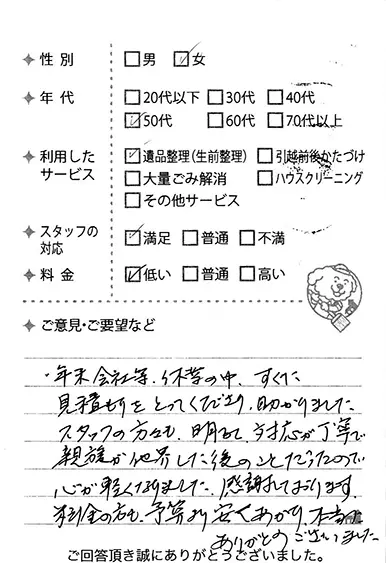 性別 □男 ☑女
年代 □20代以下 □30代 □40代
☑50代 □60代 □70代以上
利用したサービス ☑遺品整理(生前整理) □引越前後かたづけ
□大量ごみ解消 □ハウスクリーニング
□その他サービス
スタッフの対応 ☑満足 □普通 □不満
料金 ☑低い □普通 □高い
ご意見・ご要望など
・年末会社等、休業の中、すぐに
見積もりをとってくださり、助かりました。
スタッフの方々も、明るく、対応が丁寧で
親族が他界した後のことだったので
心が軽くなりました。感謝しております。
料金の方も、予算より安くあがり、本当に
ありがとうございました
ご回答頂き誠にありがとうございました。